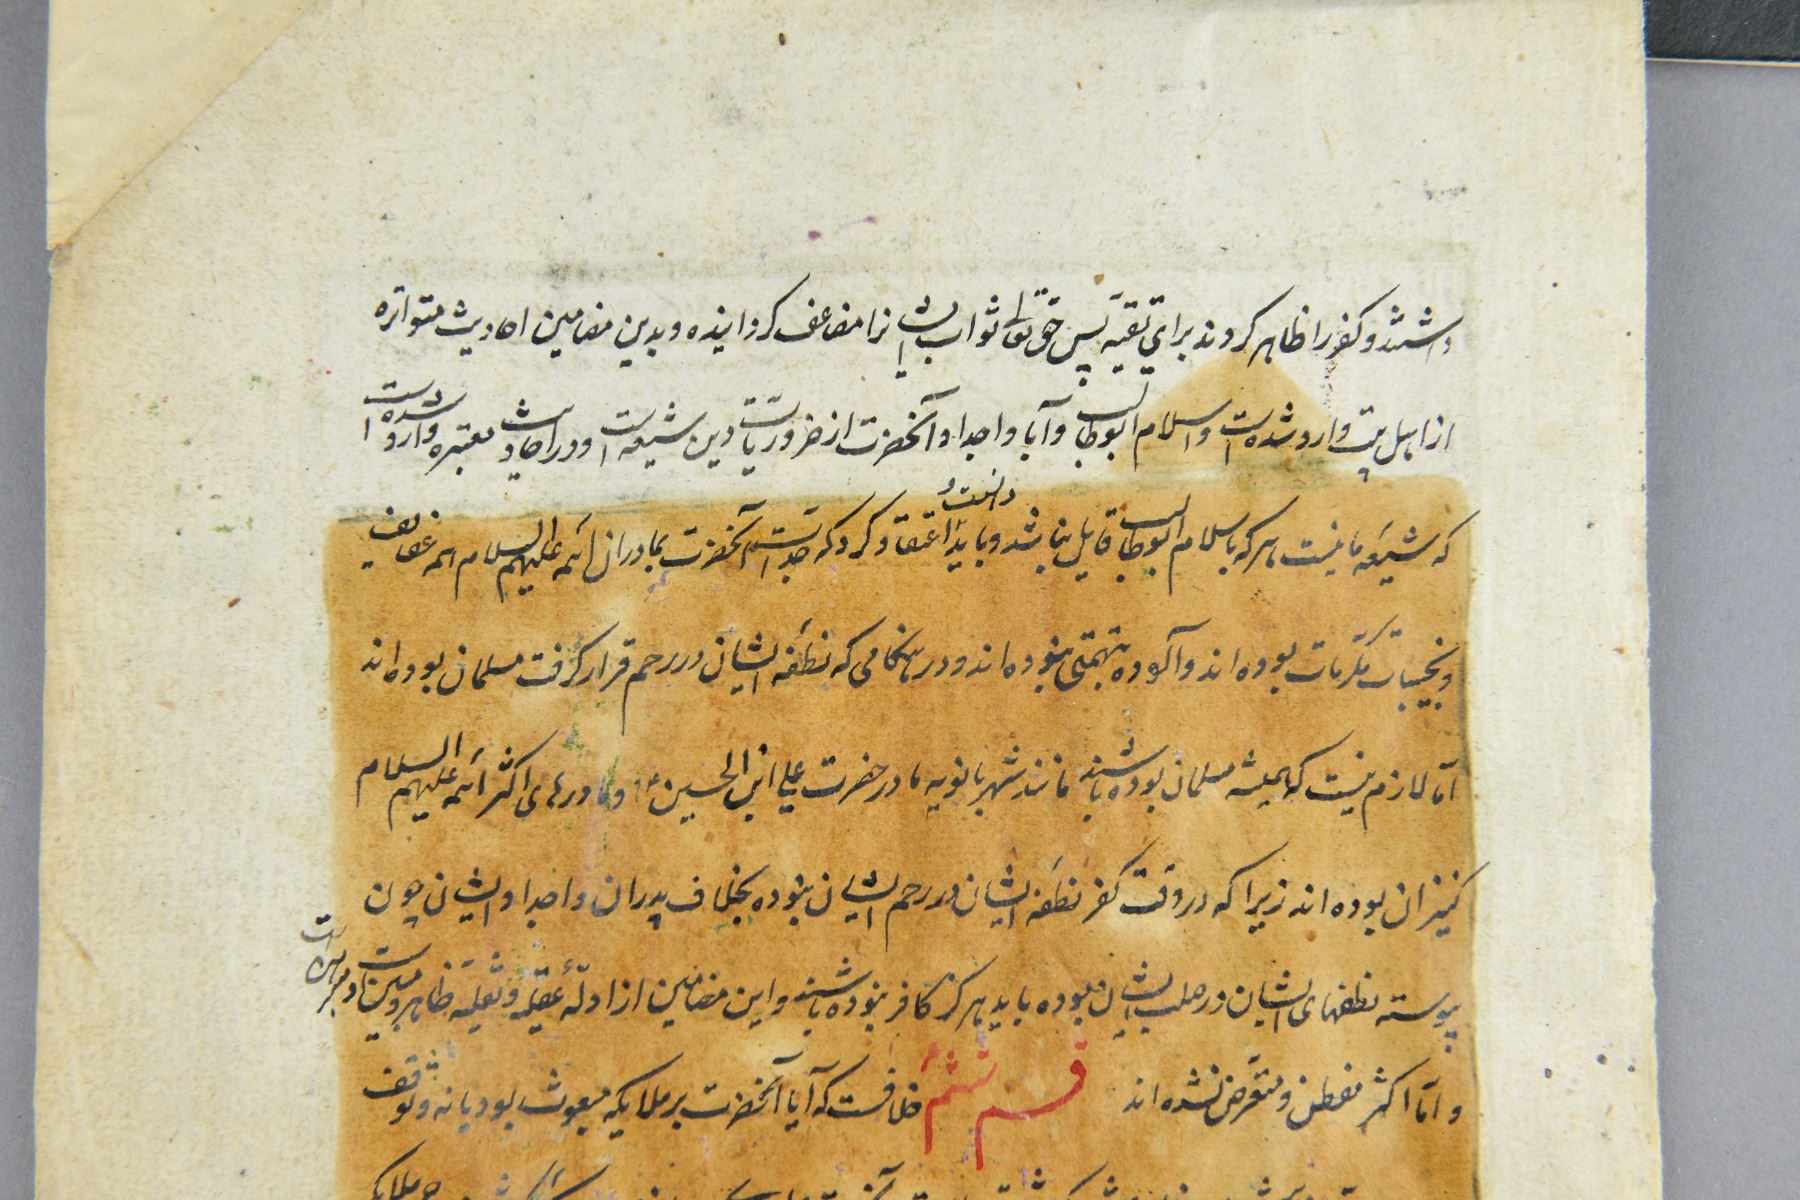 داشتند و کفر را ظاهر کردند برای تقیه پس حق تعالی ثواب ایشانرا مضاعف گردانیده و بدین مضامین احادیث متواتره
از اهل بیت وارد شده است و اسلام ابوطالب و آبا و اجداد آنحضرت از ضروریات دین شیعه است و در احادیث معتبره وارد شده است
که شیعه ما نیست هر که باسلام ابوطالب قایل نباشد و باید دانست و اعتقاد کرد که جدات آنحضرت و مادران ائمه علیهم السلام همه عفایف
و نجیبات مکرمات بوده اند و آلوده بتهمتی نبوده اند و در هنگامی که نطفه ایشان در رحم قرار گرفت مسلمان بوده اند
اما لازم نیست که همیشه مسلمان بوده باشند مانند شهر بانویه مادر حضرت علی ابن الحسین ع و مادرهای اکثر ائمه علیهم السلام
کنیزان بوده اند زیرا که در وقت کفر نطفه ایشان در رحم ایشان نبوده بخلاف پدران و اجداد ایشان چون
پیوسته نطفهای ایشان در صلب ایشان بوده باید هرگز کافر نبوده باشند و این مضامین از ادله عقلیه و نقلیه ظاهر و مبین است
و اما اکثر متفطن و متعرض نشده اند قسم ششم خلافست که آیا آنحضرت بر ملایکه مبعوث بود یا نه و توقف